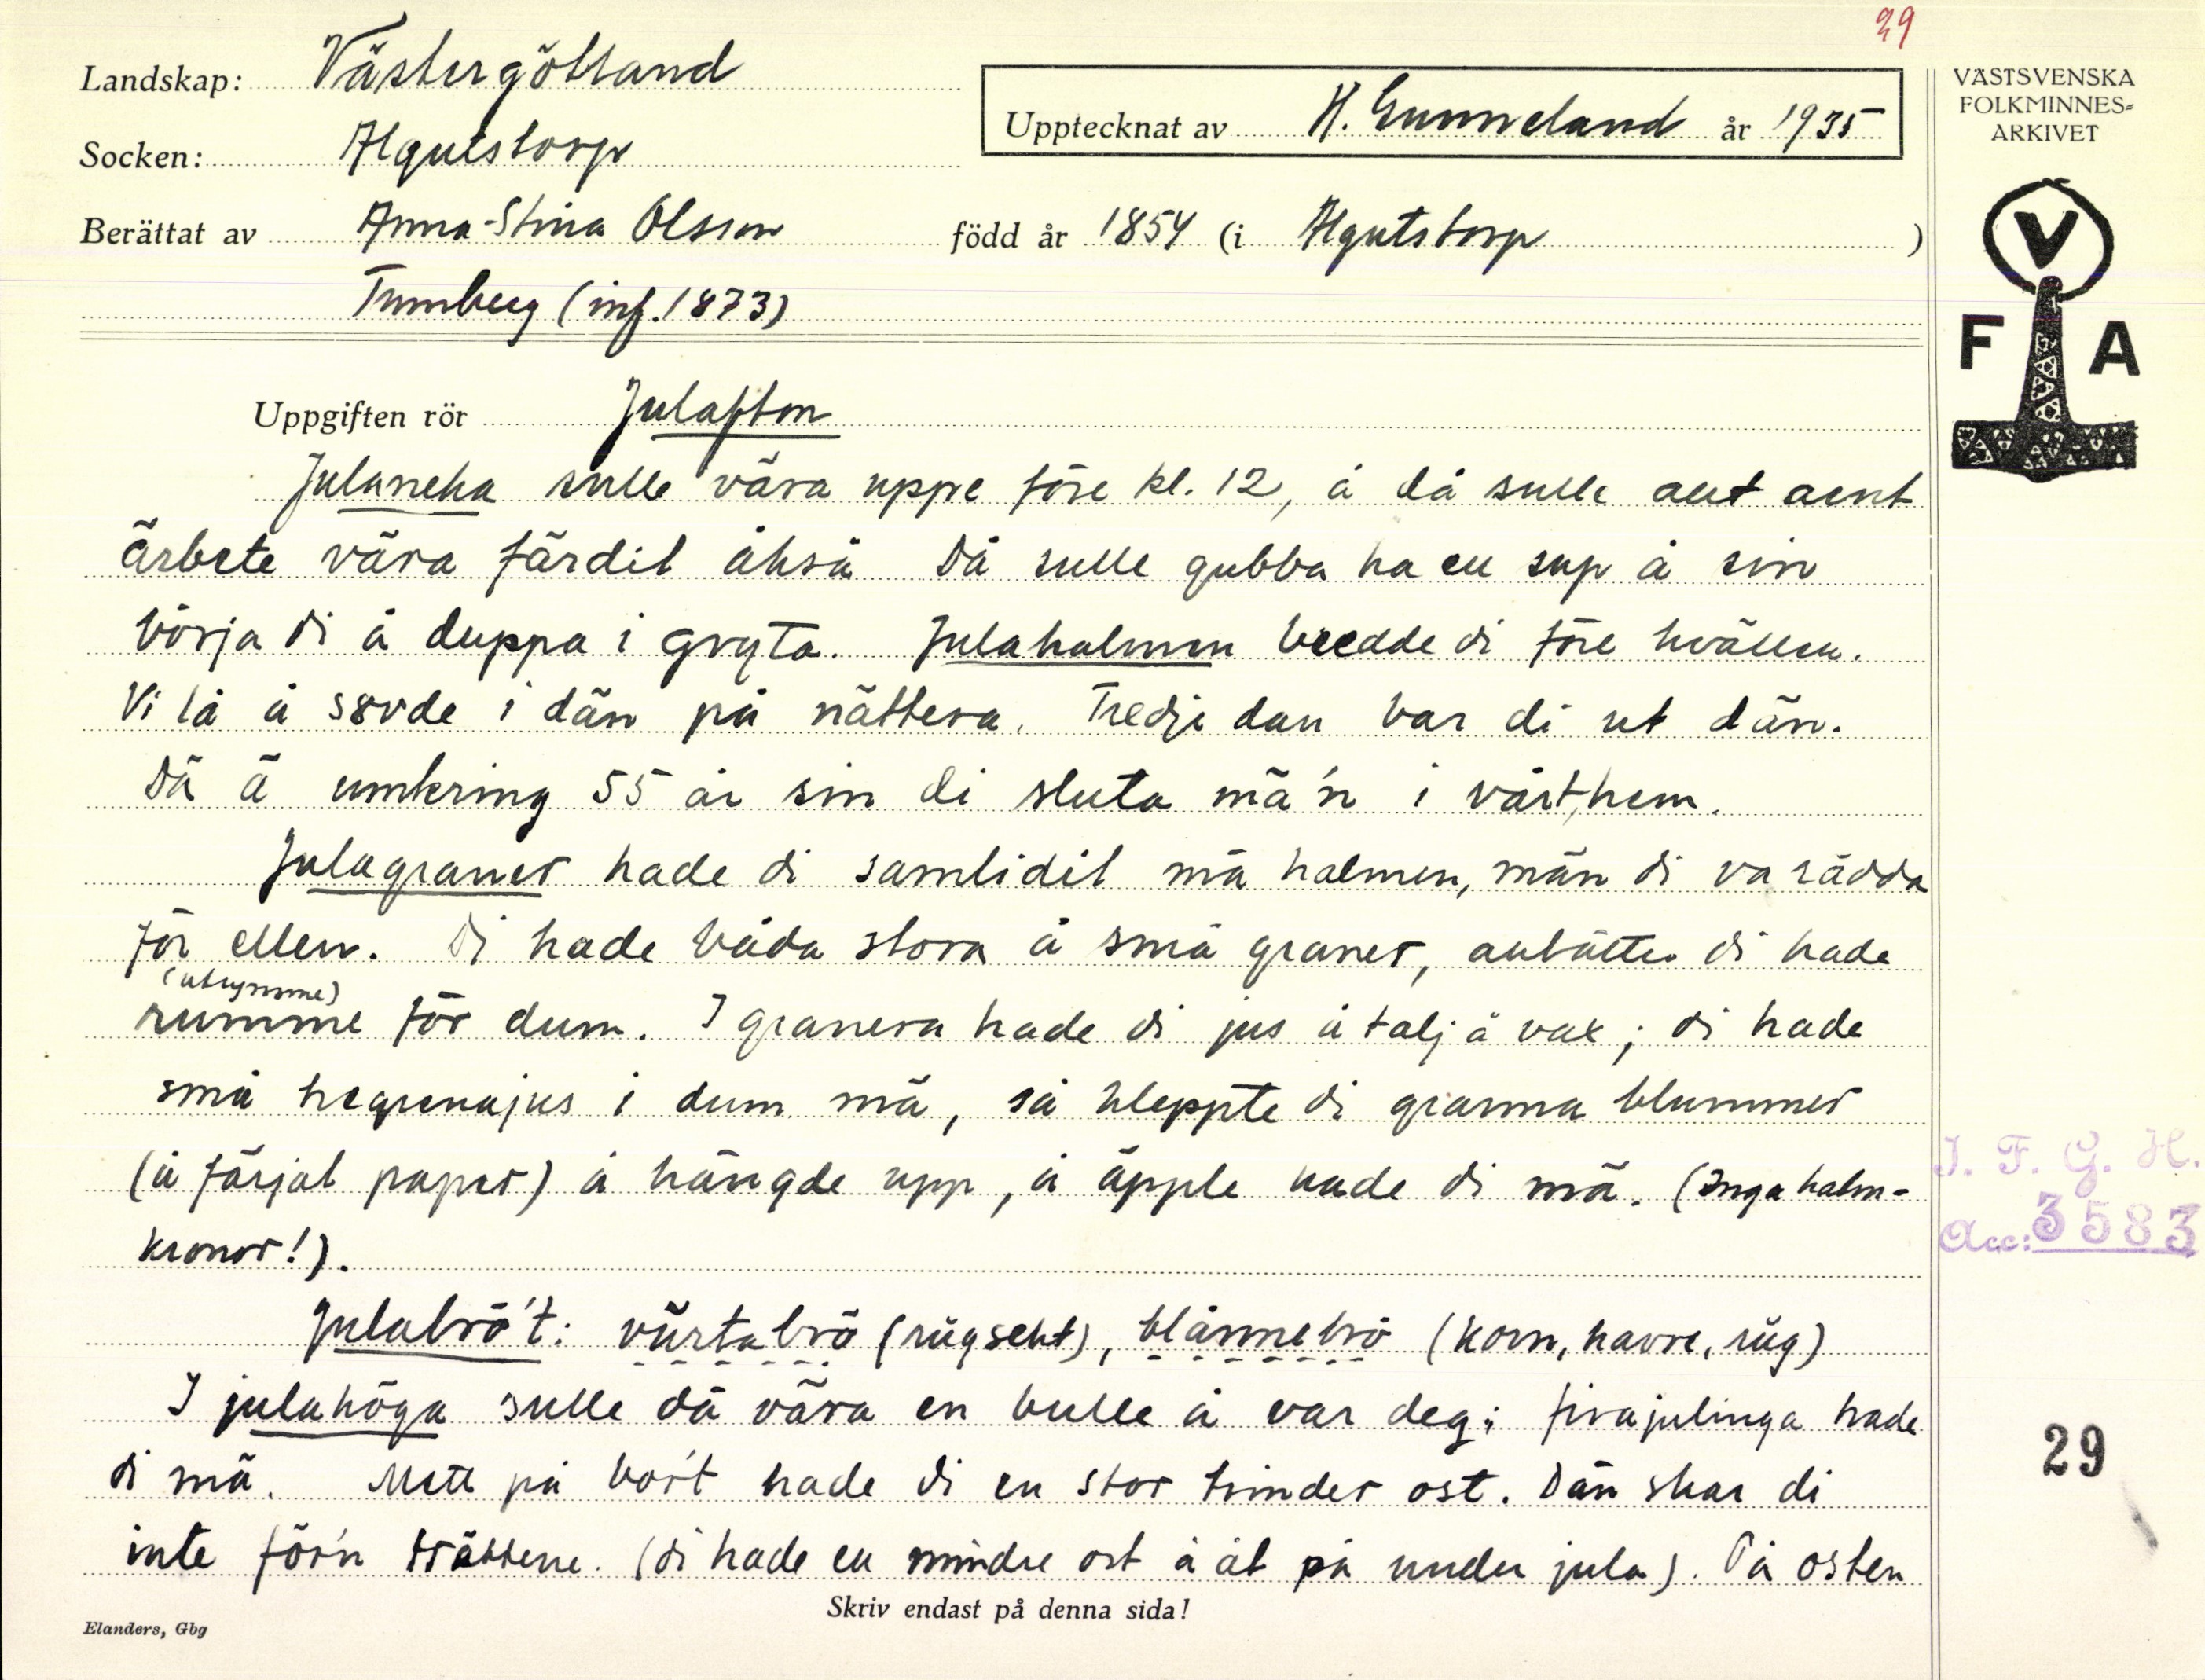 29
Landskap: Västergötland
VÄSTSVENSKA
FOLKMINNES=
ARKIVET
Upptecknat av H. Gunneland år 1935
Socken: Algutstorp
Berättat av Anna-Stina Olsson född år 1854 (i Algutstorp )
Tumberg (inf. 1873)
V
F A
Uppgiften rör Julafton
Julaneka sulle vära uppe före kl. 12, å då sulle allt aent
ärbete vära färdit åkså Då sulle gubba ha en sup å sin
börja di å duppa i gryta. Julahalmen bredde di före kvällen.
Vi lå å sovde i dän på nättera. Tredje dan bar di ut dän.
Dä ä umkring 55 år sin di sluta mä'n i vårt hem.
Julagraner hade di samtidit mä halmen, män di va rädda
för ellen. Di hade båda stora å små graner, ditt di hade
(utrymme)
rumme för dum. I granera hade di jus å talj å vax; di hade
små hegrenajus i dum mä, så kleppte di granna blummer
(å färjat paper) å hängde upp, å äpple hade di mä. (Inga halm-
kronor!).
I. F. G. H.
Acc: 3583
Julabrö't: vürtabrö (rügsekt), blånnebrö (korn, havre, rüg)
I julahöga sulle dä vära en bulle å var deg; firajulinga hade
di mä. Mett på bor't hade di en stor trinder ost. Dän skar di
29
inte förr'n trättene. (di hade en mindre ost å åt på under jula). På osten
Skriv endast på denna sida!
Elanders, Gbg